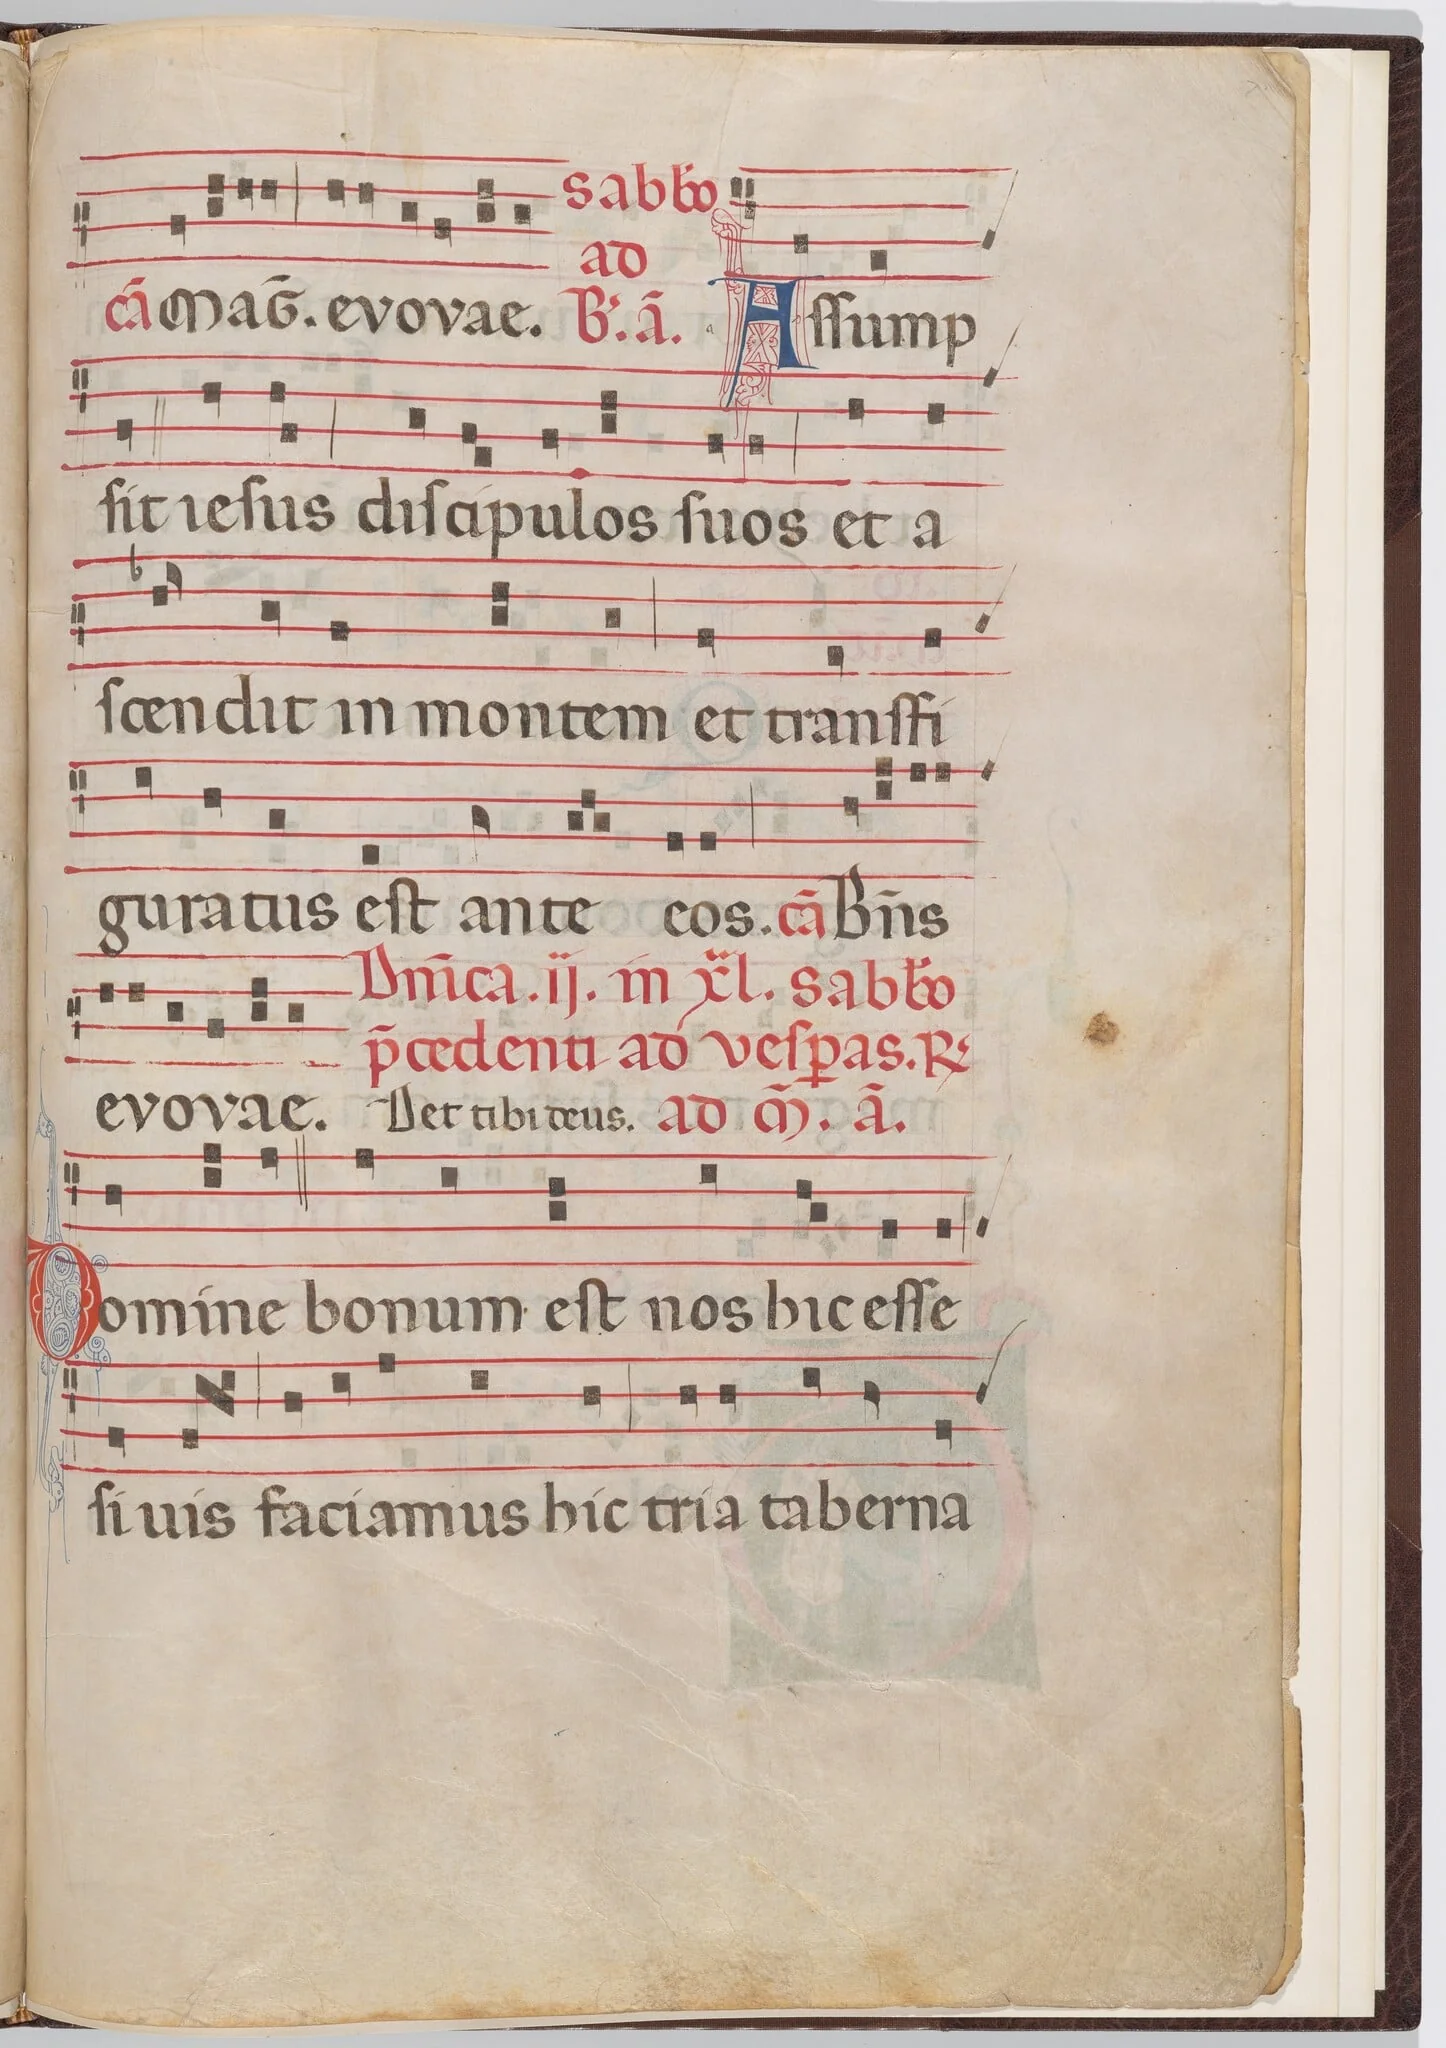 sabbo
ad
cā Maḡ. evovae. B'. ā. Assump
sit iesus discipulos suos et a
scendit in montem et transfi
guratus est ante eos. cā Bn̄s
Dnīca .ij. in xl. sabbo
p̄cedenti ad vesꝑas. R'
evovae. Det tibi deus. ad M̄. ā.
Domine bonum est nos hic esse
si uis faciamus hic tria taberna